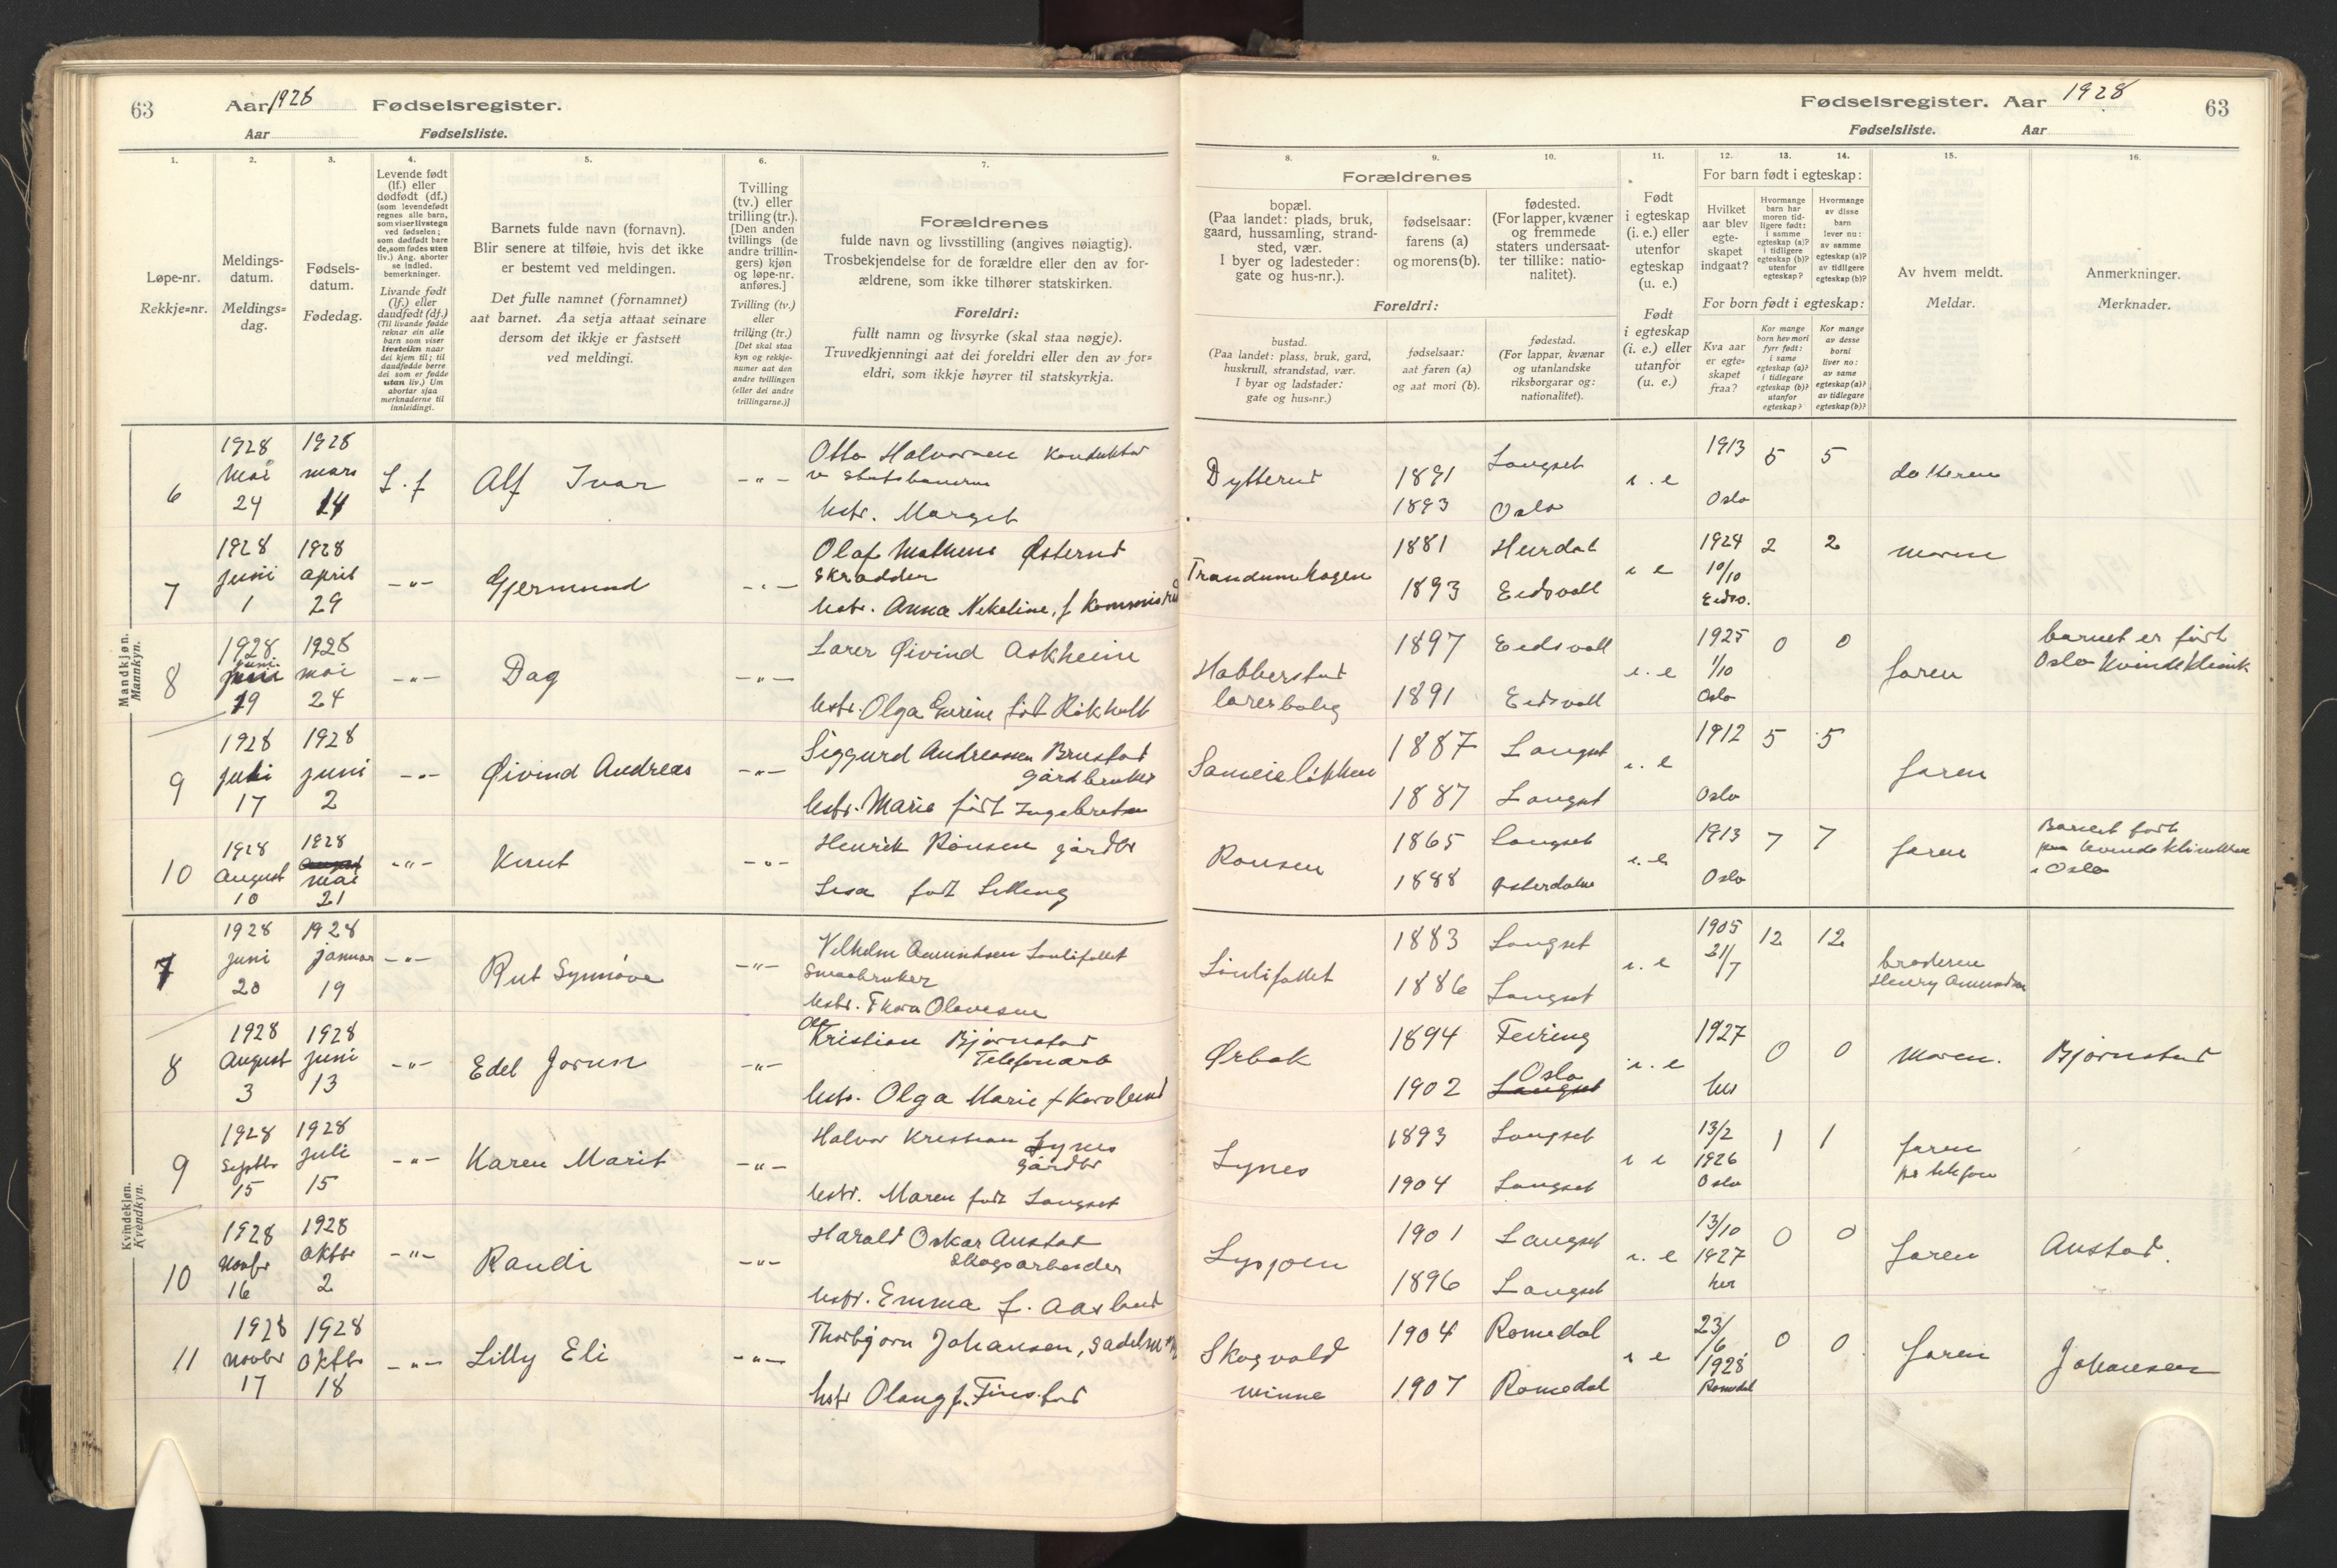 63
Aar 1928 Fødselsregister.
Aar Fødselsliste.
1.
Løpe-nr.
Rekkje=nr.
2.
Meldings-
datum.
Meldings=
dag.
3.
Fødsels-
datum.
Fødedag.
4.
Levende født
(lf.) eller
dødfødt (df.)
(som levendefødt
regnes alle barn,
som viser livstegn
ved fødselen;
som dødfødt bare
de, som fødes uten
liv.) Ang. aborter
se indled.
bemerkninger.
Livande født
(lf.) eller
daudfødt (df.)
(Til livande fødde
reknar ein alle
barn som viser
livsteikn naar
dei kjem til; til
daudfødde berre
dei som er fødde
utan liv.) Um
abortar sjaa
merknaderne til
innleidingi.
5.
Barnets fulde navn (fornavn).
Blir senere at tilføie, hvis det ikke
er bestemt ved meldingen.
Det fulle namnet (fornamnet)
aat barnet. Aa setja attaat seinare
dersom det ikkje er fastsett
ved meldingi.
6.
Tvilling
(tv.) eller
trilling (tr.).
[Den anden
tvillings (de
andre trillin-
gers) kjøn
og løpe-nr.
anføres.]
Tvilling (tv.)
eller
trilling (tr.)
[Det skal staa
kyn og rekkje-
numer aat den
andre tvillingen
(eller dei andre
trillingarne.)]
7.
Forældrenes
fulde navn og livsstilling (angives nøiagtig).
Trosbekjendelse for de forældre eller den av for-
ældrene, som ikke tilhører statskirken.
Foreldri:
fullt namn og livsyrke (skal staa nøgje).
Truvedkjenningi aat dei foreldri eller den av for=
eldri, som ikkje høyrer til statskyrkja.
Mandkjøn.
Mannkyn.
6
1928
Mai
24
1928
mars
14
L. f
Alf Ivar
-"-
Otto Halvorsen Konduktør
v Statsbanerne
hstr. Marget
7
1928
juni
1
1928
april
29
-"-
Gjermund
-"-
Olaf Matheus Østerud
Skrædder
hstr. Anna Nikoline, f
8
1928
juni
19
1928
mai
24
-"-
Dag
-"-
Lærer Øivind Askheim
hstr. Olga Gurine født Røkholt
9
1928
juli
17
1928
juni
2
-"-
Øivind Andreas
-"-
Siggurd Andreassen Brustad
gårdbruker
hstr. Marie født Ingebretsen
10
1928
August
10
1928
mai
21
-"-
Knut
-"-
Henrik Rønsen gårdbr
Lisa født
Kvindekjøn.
Kvendkyn.
7
1928
juni
20
1928
januar
19
-"-
Rut Synnøve
-"-
Vilhelm Amundsen Linlifallet
Smaabruker
hstr. Thora Olavesen
8
1928
August
3
1928
juni
13
-"-
Edel Jorun
-"-
Ole
Kristian Bjørnstad
Telefonarb
hstr. Olga Marie f
9
1928
Septbr
15
1928
juli
15
-"-
Karen Marit
-"-
Halvor Kristian Lynes
Gårdbr
hstr. Maren født Langset
10
1928
Novbr
16
1928
Oktbr
2
-"-
Randi
-"-
Harald Oskar Anstad
Skogsarbeider
hstr. Emma f. Aaslund
11
1928
novbr
17
1928
Oktbr
18
-"-
Lilly Eli
-"-
Thorbjørn Johansen,
hstr Olaug f. Finstad
Fødselsregister. Aar 1928
63
Fødselsliste. Aar
8.
Forældrenes
bopæl.
(Paa landet: plads, bruk,
gaard, hussamling, strand-
sted, vær.
I byer og ladesteder:
gate og hus-nr.).
Foreldri:
bustad.
(Paa landet: plass, bruk, gard,
huskrull, strandstad, vær.
I byar og ladstader:
gate og hus=nr.)
9.
fødselsaar:
farens (a)
og morens (b).
fødselsaar:
aat faren (a)
og aat mori (b).
10.
fødested.
(For lapper, kvæner
og fremmede
staters undersaat-
ter tillike: natio-
nalitet).
fødestad.
(For lappar, kvænar
og utanlandske
riksborgarar og:
nationalitet).
11.
Født
i egteskap
(i. e.) eller
utenfor
egteskap
(u. e.)
Født
i egteskap
(i. e.) eller
utanfor
(u. e.)
For barn født i egteskap:
12.
Hvilket
aar blev
egte-
skapet
indgaat?
13.
Hvormange
barn har
moren tid-
ligere født:
i samme
egteskap (a)?
i tidligere
egteskap (b)?
utenfor
egteskap?
14.
Hvormange
av disse
barn
lever nu:
av samme
egteskap (a)?
av tidligere
egteskap (b)?
For born født i egteskap:
Kva aar
er egte=
skapet
fraa?
Kor mange
born hev mori
fyrr født:
i same
egteskap (a)?
i tidlegare
egteskap (b)?
utanfor
egteskap?
Kor mange
av desse
borni
liver no:
av same
egteskap (a)?
av tidlegare
egteskap (b)?
15.
Av hvem meldt.
Meldar.
16.
Anmerkninger.
Merknader.
Dytterud
1891
1893
Langset
Oslo
i. e
1913
Oslo
5
5
datteren
Trandumskogen
1881
1893
Hurdal
Eidsvoll
i e
1924
10/10
Eidsv.
2
2
moren
Habberstad
lærerbolig
1897
1891
Eidsvoll
Eidsvoll
i. e
1925
1/10
Oslo
0
0
faren
barnet er født
Oslo Kvindeklinik
Sameieløkken
1887
1887
Langset
Langset
i. e
1912
Oslo
5
5
faren
Rønsen
1865
1888
Langset
Østerdalen
i. e
1913
Oslo
7
7
faren
Barnet født
paa kvindeklinikken
i Oslo
Linlifallet
1883
1886
Langset
Langset
i. e
1905
21/7
12
12
broderen
Henry Amundsen
Ørbæk
1894
1902
Feiring
Oslo
Langset
i. e
1927
her
0
0
Moren.
Bjørnstad
Lynes
1893
1904
Langset
Langset
i e
13/2
1926
Oslo
1
1
faren
pr telefon
Lysjøen
1901
1896
Langset
Langset
i. e
13/10
1927
her
0
0
faren
Anstad.
Skogvold
Minne
1904
1907
Romedal
Romedal
i e
23/6
1928
Romedal
0
0
faren
Johansen